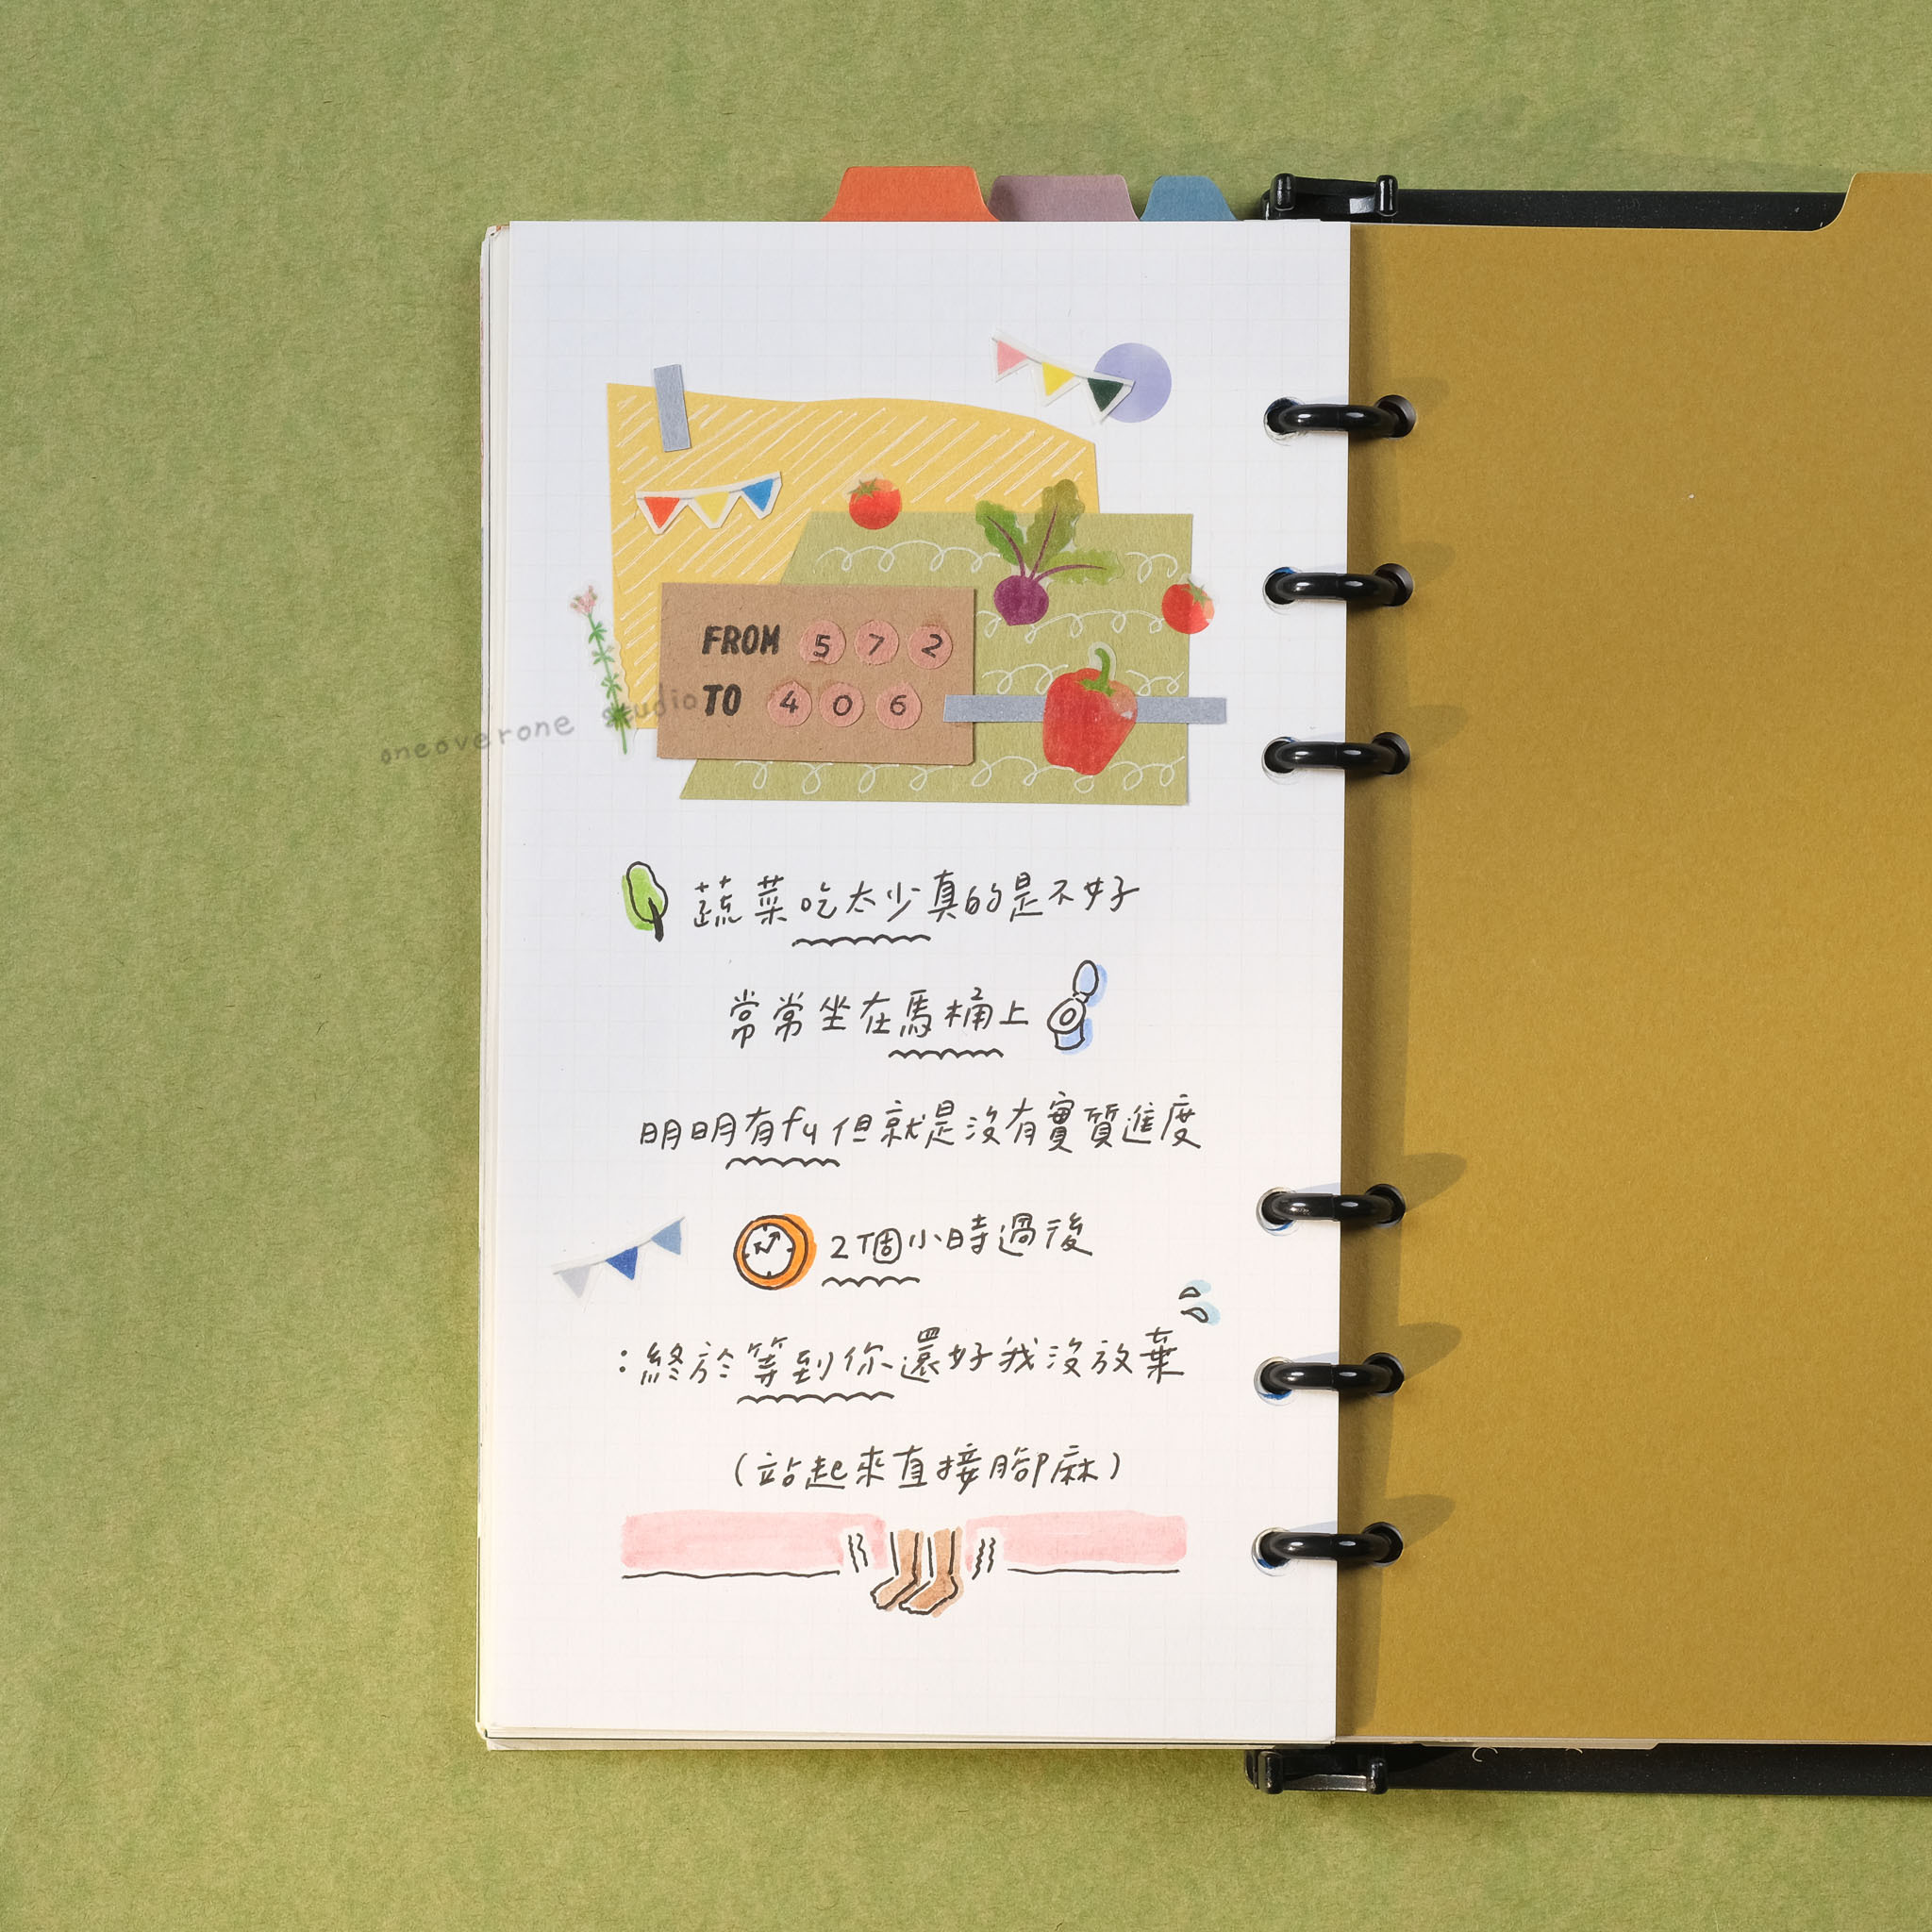 FROM 572
TO 406
oneoverone studio
蔬菜吃太少真的是不好
常常坐在馬桶上
明明有fu但就是沒有實質進度
2個小時過後
：終於等到你還好我沒放棄
（站起來直接腳麻）